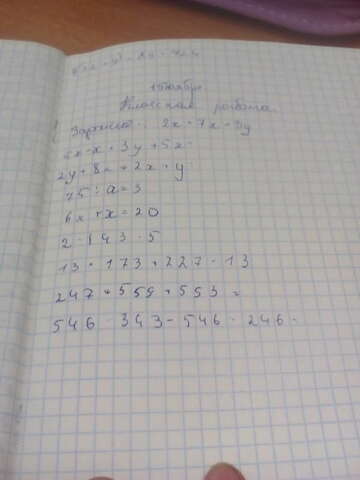 Классная работа
2x + 7x - 3y
4x - x + 3y + 5x
2y + 8x + 2x + y
75 : a = 3
6x + x = 20
2 · 143 · 5
13 · 173 + 227 · 13
247 + 559 + 553 =
546 · 343 - 546 · 246 =